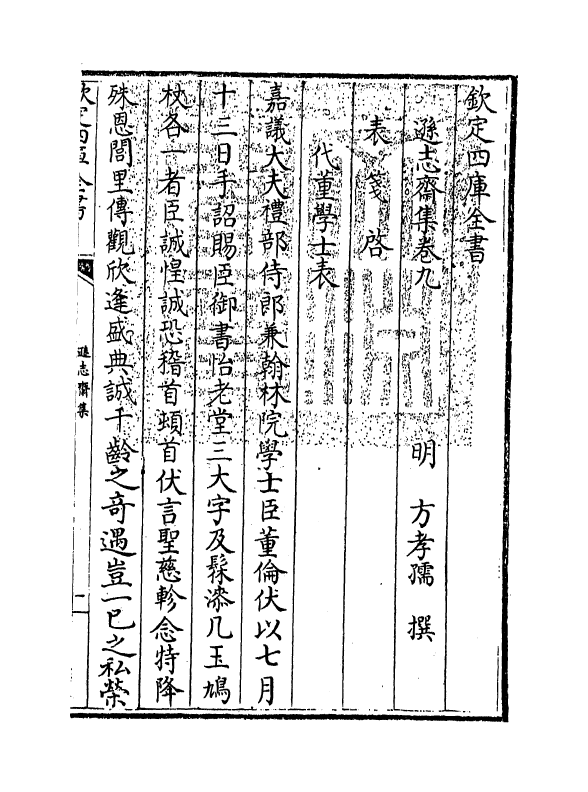 欽定四庫全書
遜志齋集卷九
明　方孝孺　撰
表箋啓
代董學士表
嘉議大夫禮部侍郎兼翰林院學士臣董倫伏以七月
十三日手詔賜臣御書怡老堂三大字及髹漆几玉鳩
杖各一者臣誠惶誠恐稽首頓首伏言聖慈軫念特降
殊恩閭里傳觀欣逢盛典誠千齡之奇遇豈一已之私榮
欽定四庫全書
遜志齋集
一